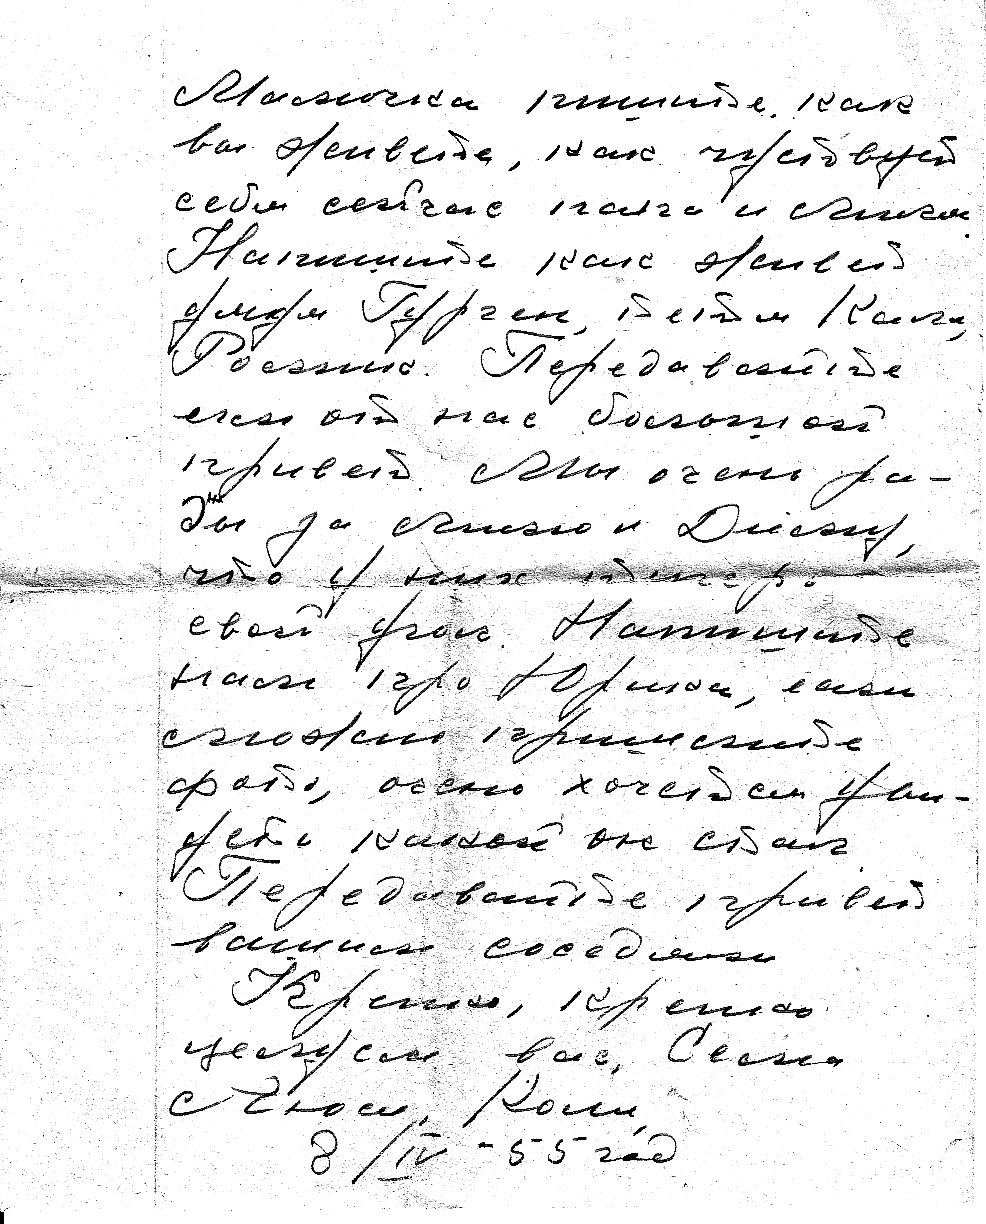 Мамочка пишите, как
вы живете, как чуствует
себя сейчас папа и
Напишите как живет
дядя Гурген, тетя Катя,
Передавайте
им от нас большой
привет. Мы очень ра-
ды за и
что у них теперь
свой угол. Напишите
нам про Юрика, если
сможете пришлите
фото, очень хочется уви-
деть какой он стал.
Передавайте привет
вашим соседям.
Крепко, крепко
целуем вас,
Коля,
8/IV - 55 год